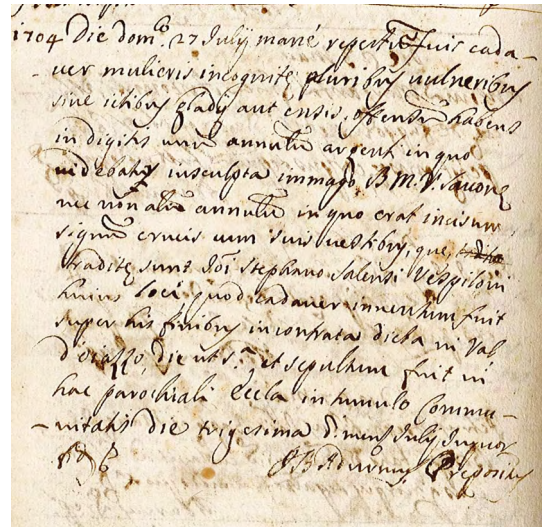 1704 Die dom.ᶜᵒ 27 Julij mané repertũ fuit cada-
uer mulieris incognitę pluribus uulneribus
siue ictibus gladij aut ensis offensum habens
in digitis unũ annulũ argenti in quo
uidebatur insculpta immago B M. V. Sauonę
nec non aliũ annulũ in quo erat incisum
signũ crucis cum suis uestibus, que,
traditę sunt Joi Stephano Salensi Vespiloni
huius loci quod cadauer inuentum fuit
super his finibus in contrata dicta in Val
d'oiazzo, die ut sᵃ et sepultum fuit in
hac parochiali Eccla in tumulo Commu-
-nitatis die trigesima d. mens Julij
J B Adurnus Prepositus